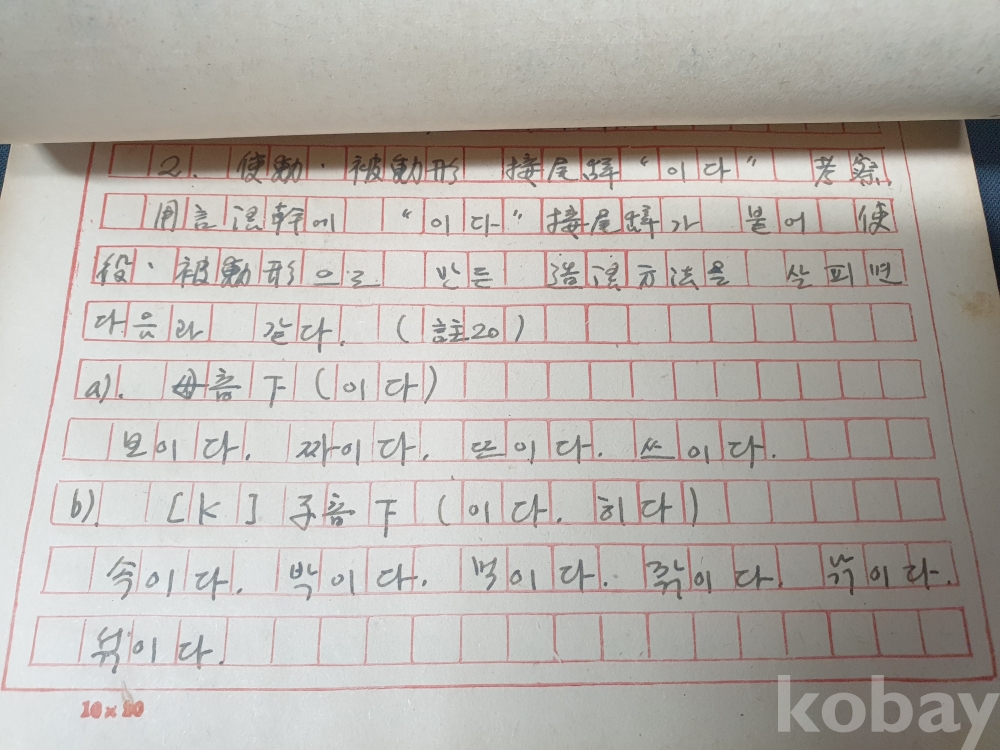 2. 使動·被動形 接尾辞 "이다" 考察
用言語幹에 "이다" 接尾辞가 붙어 使
役·被動形으로 만든 造語方法을 살피면
다음과 같다. (註20)
a). 母音下 (이다)
보이다. 짜이다. 뜨이다. 쓰이다.
b). [K] 子音下 (이다. 히다)
속이다. 박이다. 먹이다. 깎이다.
볶이다.
10×20
kobay